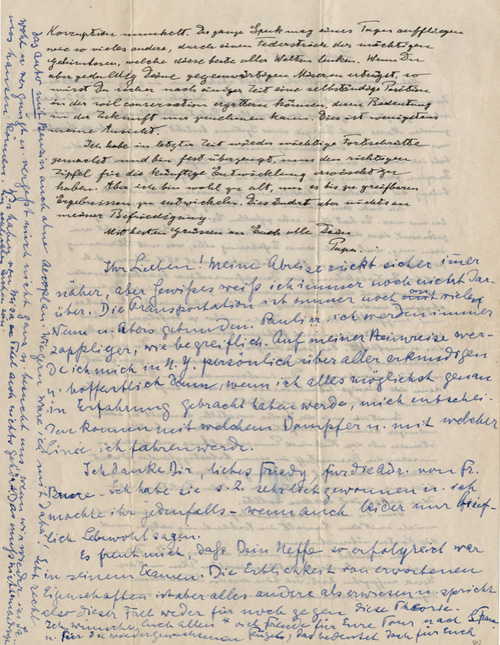 Korruption munkelt. Der ganze Spuk mag eines Tages auffliegen
wie so vieles andere, durch einen Federstrich der mächtigen
Gehirnlosen, welche diese beste aller Welten lenken. Wenn Du
aber geduldig Deine gegenwärtigen Miseren erträgst, so
wirst Du sicher nach einiger Zeit eine selbständige Position
in der soil conservation ergattern können, deren Bedeutung
in der Zukunft nur zunehmen kann. Dies ist wenigstens
meine Ansicht.
Ich habe in letzter Zeit wieder wichtige Fortschritte
gemacht und bin fest überzeugt, nun den richtigen
Zipfel für die künftige Entwicklung erwischt zu
haben. Aber ich bin wohl zu alt, um es bis zu greifbaren
Ergebnissen zu entwickeln. Dies ändert aber nichts an
meiner Befriedigung.
Mit besten Grüssen an Euch alle Dein
Papa.
Ihr Lieben! Meine Abreise rückt sicher immer
näher, aber Gewisses weiß ich immer noch nicht dar-
über. Die Transportation ist immer noch an vielen
Wenn u. Abers gebunden. Paul u. ich werden immer
zappliger, wie begreiflich. Auf meiner Heimreise wer-
de ich mich in N. Y. persönlich über alles erkundigen
u. hoffentlich dann, wenn ich alles möglichst genau
in Erfahrung gebracht haben werde, mich entschei-
den können mit welchem Dampfer u. mit welcher
Linie ich fahren werde.
Ich danke Dir, liebes Friedy, für die Adr. von Fr.
Ich habe sie s. Z. sehr lieb gewonnen u. ich
möchte ihr jedenfalls – wenn auch leider nur brief-
lich Lebewohl sagen.
Es freut mich, daß Dein Neffe so erfolgreich war
in seinem Examen. Die Erblichkeit von erworbenen
Eigenschaften ist aber alles andere als erwiesen u. spricht
also dieser Fall weder für noch gegen diese Theorie.
Ich wünsche Euch allen viel Freude für Eure Tour nach S. Fran.
u. für die wiedergewachsenen Flügel, das bedeutet doch für Euch
das Auto mit Benzin auch ohne Aeroplan. Wie gern wäre ich mit dabei! Lebt recht
wohl u. vergnügt u. vergeßt mich nicht ganz u. besucht uns wenn wir wieder in